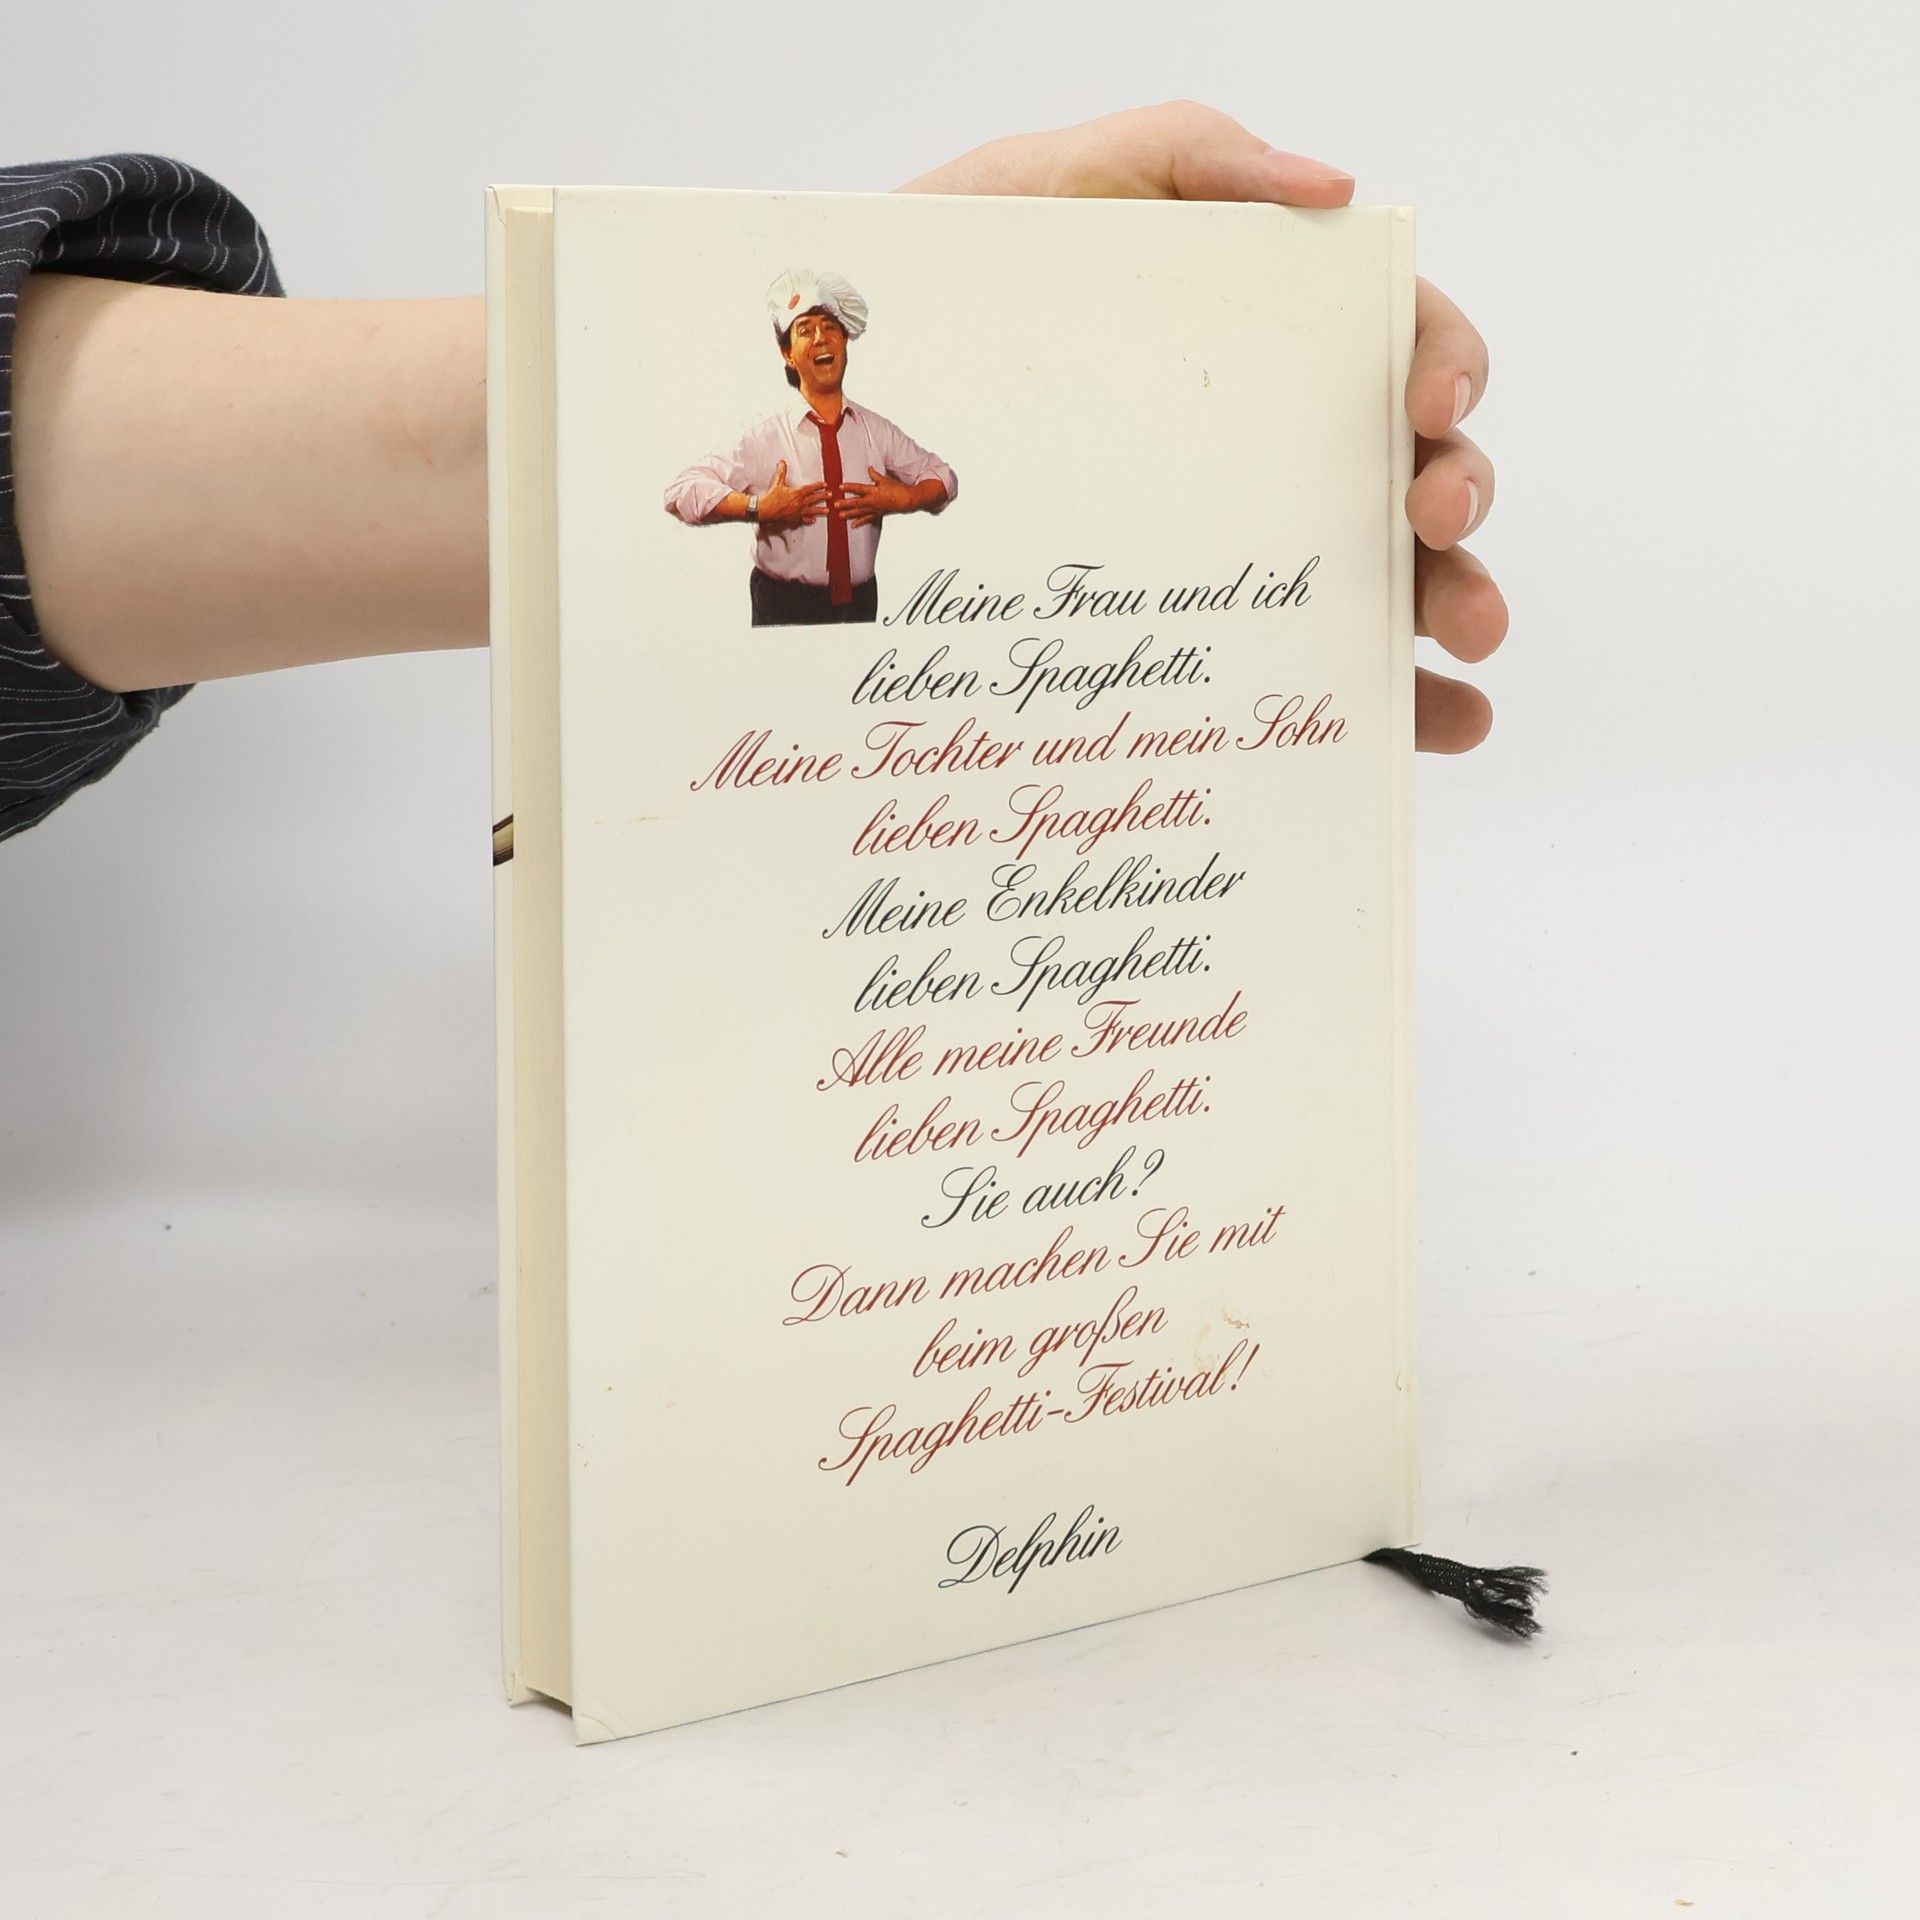 Meine Frau und ich
lieben Spaghetti.
Meine Tochter und mein Sohn
lieben Spaghetti.
Meine Enkelkinder
lieben Spaghetti.
Alle meine Freunde
lieben Spaghetti.
Sie auch?
Dann machen Sie mit
beim großen
Spaghetti-Festival!
Delphin